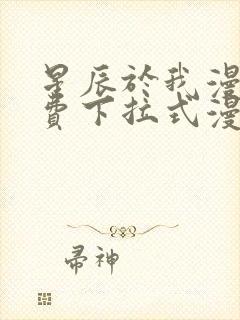 星辰於我漫
費下拉式漫
帚神